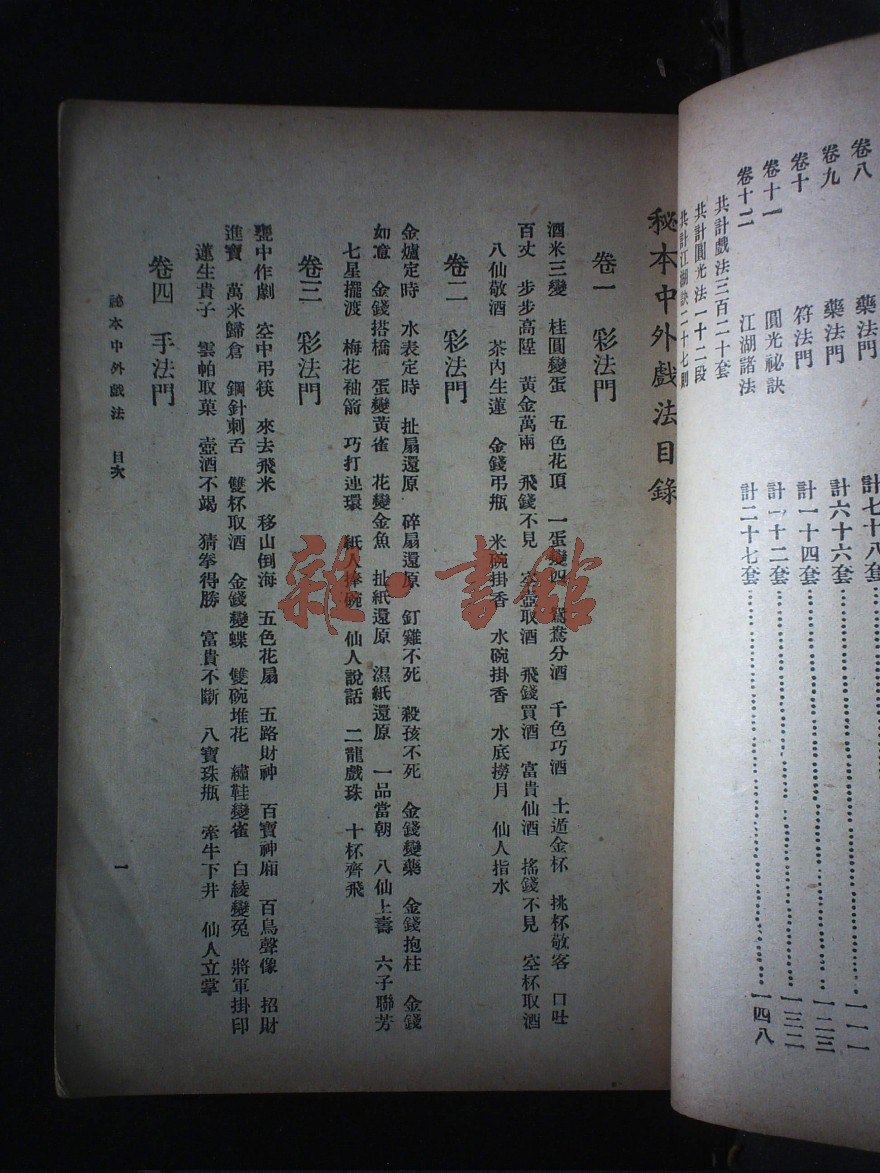 卷八　藥法門　計七十八套……一一一
卷九　藥法門　計六十六套……一二三
卷十　符法門　計一十四套……一三二
卷十一　圓光祕訣　計一十二套……
卷十二　江湖諸法　計二十七套……一四八
共計戲法三百二十套
共計圓光法一十二段
共計江湖訣二十七則
秘本中外戲法目錄
卷一　彩法門
酒米三變　桂圓變蛋　五色花頂　一蛋變四　鴛鴦分酒　千色巧酒　土遁金杯　挑杯敬客　口吐
百丈　步步高陞　黃金萬兩　飛錢不見　空壺取酒　飛錢買酒　富貴仙酒　搖錢不見　空杯取酒
八仙敬酒　茶內生蓮　金錢弔瓶　米碗掛香　水碗掛香　水底撈月　仙人指水
卷二　彩法門
金爐定時　水表定時　扯扇還原　碎扇還原　釘雞不死　殺孩不死　金錢變藥　金錢抱柱　金錢
如意　金錢搭橋　蛋變黃雀　花變金魚　扯紙還原　濕紙還原　一品當朝　八仙上壽　六子聯芳
七星擺渡　梅花袖箭　巧打連環　紙人捧碗　仙人說話　二龍戲珠　十杯齊飛
卷三　彩法門
甕中作劇　空中弔筷　來去飛米　移山倒海　五色花扇　五路財神　百寶神廂　百鳥聲像　招財
進寶　萬米歸倉　鋼針刺舌　雙杯取酒　金錢變蝶　雙碗堆花　繡鞋變雀　白綾變兔　將軍掛印
蓮生貴子　雲帕取菓　壺酒不竭　猜拳得勝　富貴不斷　八寶珠瓶　牽牛下井　仙人立掌
卷四　手法門
祕本中外戲法　目次
一
雜·書館